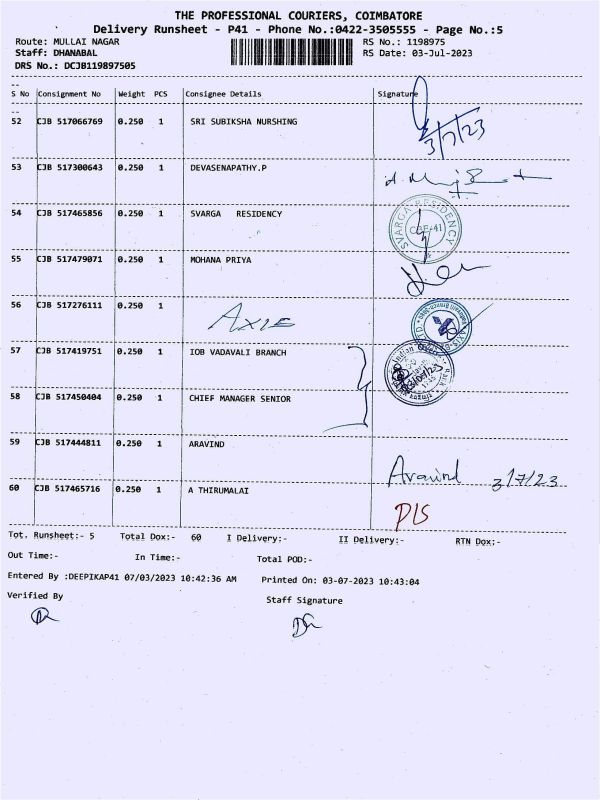 THE PROFESSIONAL COURIERS, COIMBATORE
Delivery Runsheet - P41 - Phone No.:0422-3505555 - Page No.:5
Route: MULLAI NAGAR RS No.: 1198975
Staff: DHANABAL RS Date: 03-Jul-2023
DRS No.: DCJB119897505
S No Consignment No Weight PCS Consignee Details Signature
52 CJB 517066769 0.250 1 SRI SUBIKSHA NURSHING
3/7/23
53 CJB 517300643 0.250 1 DEVASENAPATHY.P
54 CJB 517465856 0.250 1 SVARGA RESIDENCY
SVARGA RESIDENCY
CBE-41
55 CJB 517479071 0.250 1 MOHANA PRIYA
56 CJB 517276111 0.250 1
AXIE
57 CJB 517419751 0.250 1 IOB VADAVALI BRANCH
Indian
58 CJB 517450404 0.250 1 CHIEF MANAGER SENIOR
59 CJB 517444811 0.250 1 ARAVIND
Aravind 3/7/23
60 CJB 517465716 0.250 1 A THIRUMALAI
D/S
Tot. Runsheet:- 5 Total Dox:- 60 I Delivery:- II Delivery:- RTN Dox:-
Out Time:- In Time:- Total POD:-
Entered By :DEEPIKAP41 07/03/2023 10:42:36 AM Printed On: 03-07-2023 10:43:04
Verified By Staff Signature